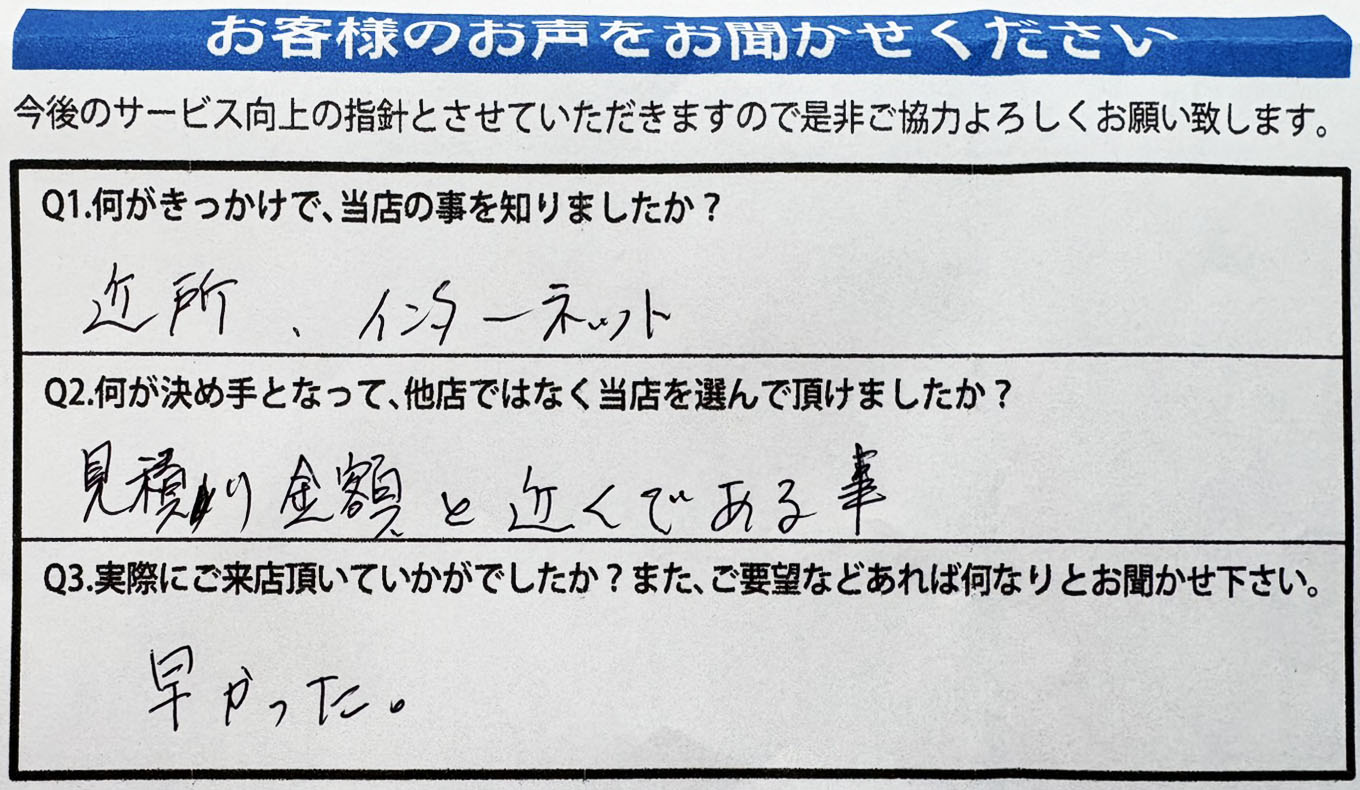 お客様のお声をお聞かせください
今後のサービス向上の指針とさせていただきますので是非ご協力よろしくお願い致します。
Q1.何がきっかけで、当店の事を知りましたか？
近所、インターネット
Q2.何が決め手となって、他店ではなく当店を選んで頂けましたか？
見積り金額と近くである事
Q3.実際にご来店頂いていかがでしたか？また、ご要望などあれば何なりとお聞かせ下さい。
早かった。